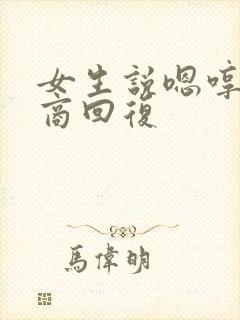 女生說嗯哼
商回復
馬偉明